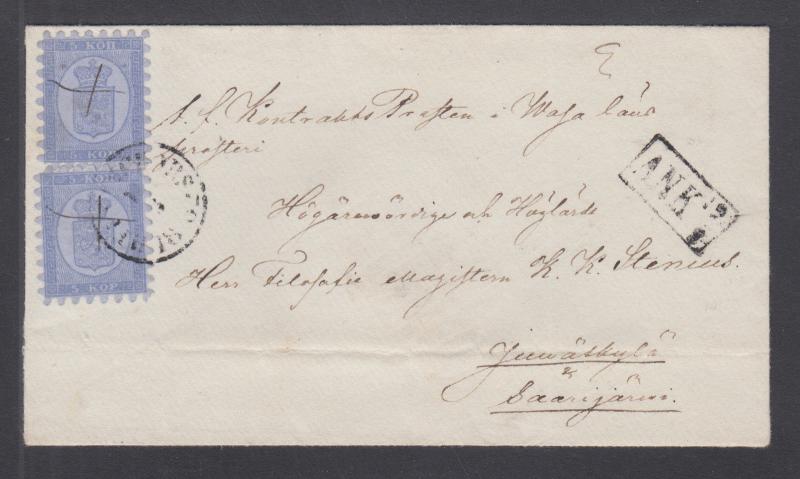 5 КОП.
5 KOP.
5 КОП.
5 KOP.
ANK
19
2
t. f. Kontrakts Prosten i Wasa läns
Högärewördige och Höglärde
Herr Filosofie Magistern K. K. Stenius.
Jyväskylä
&
Saarijärvi.